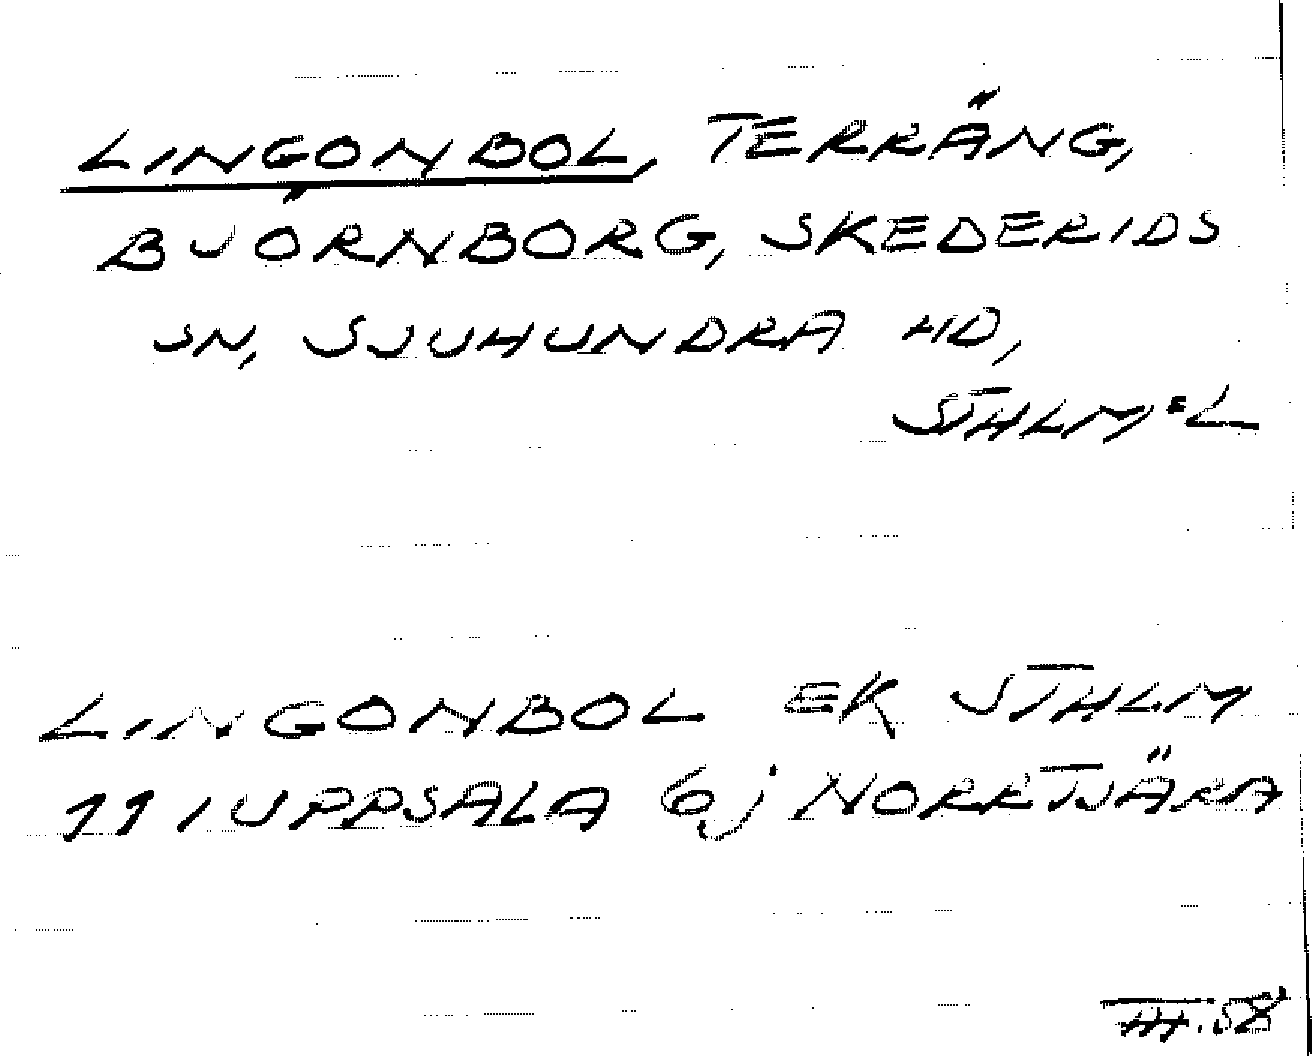 LINGONBOL, TERRÄNG,
BJÖRNBORG, SKEDERIDS
SN, SJUHUNDRA HD,
STHLM:L
LINGONBOL EK STHLM
11 I UPPSALA 6j NORRTJÄRA